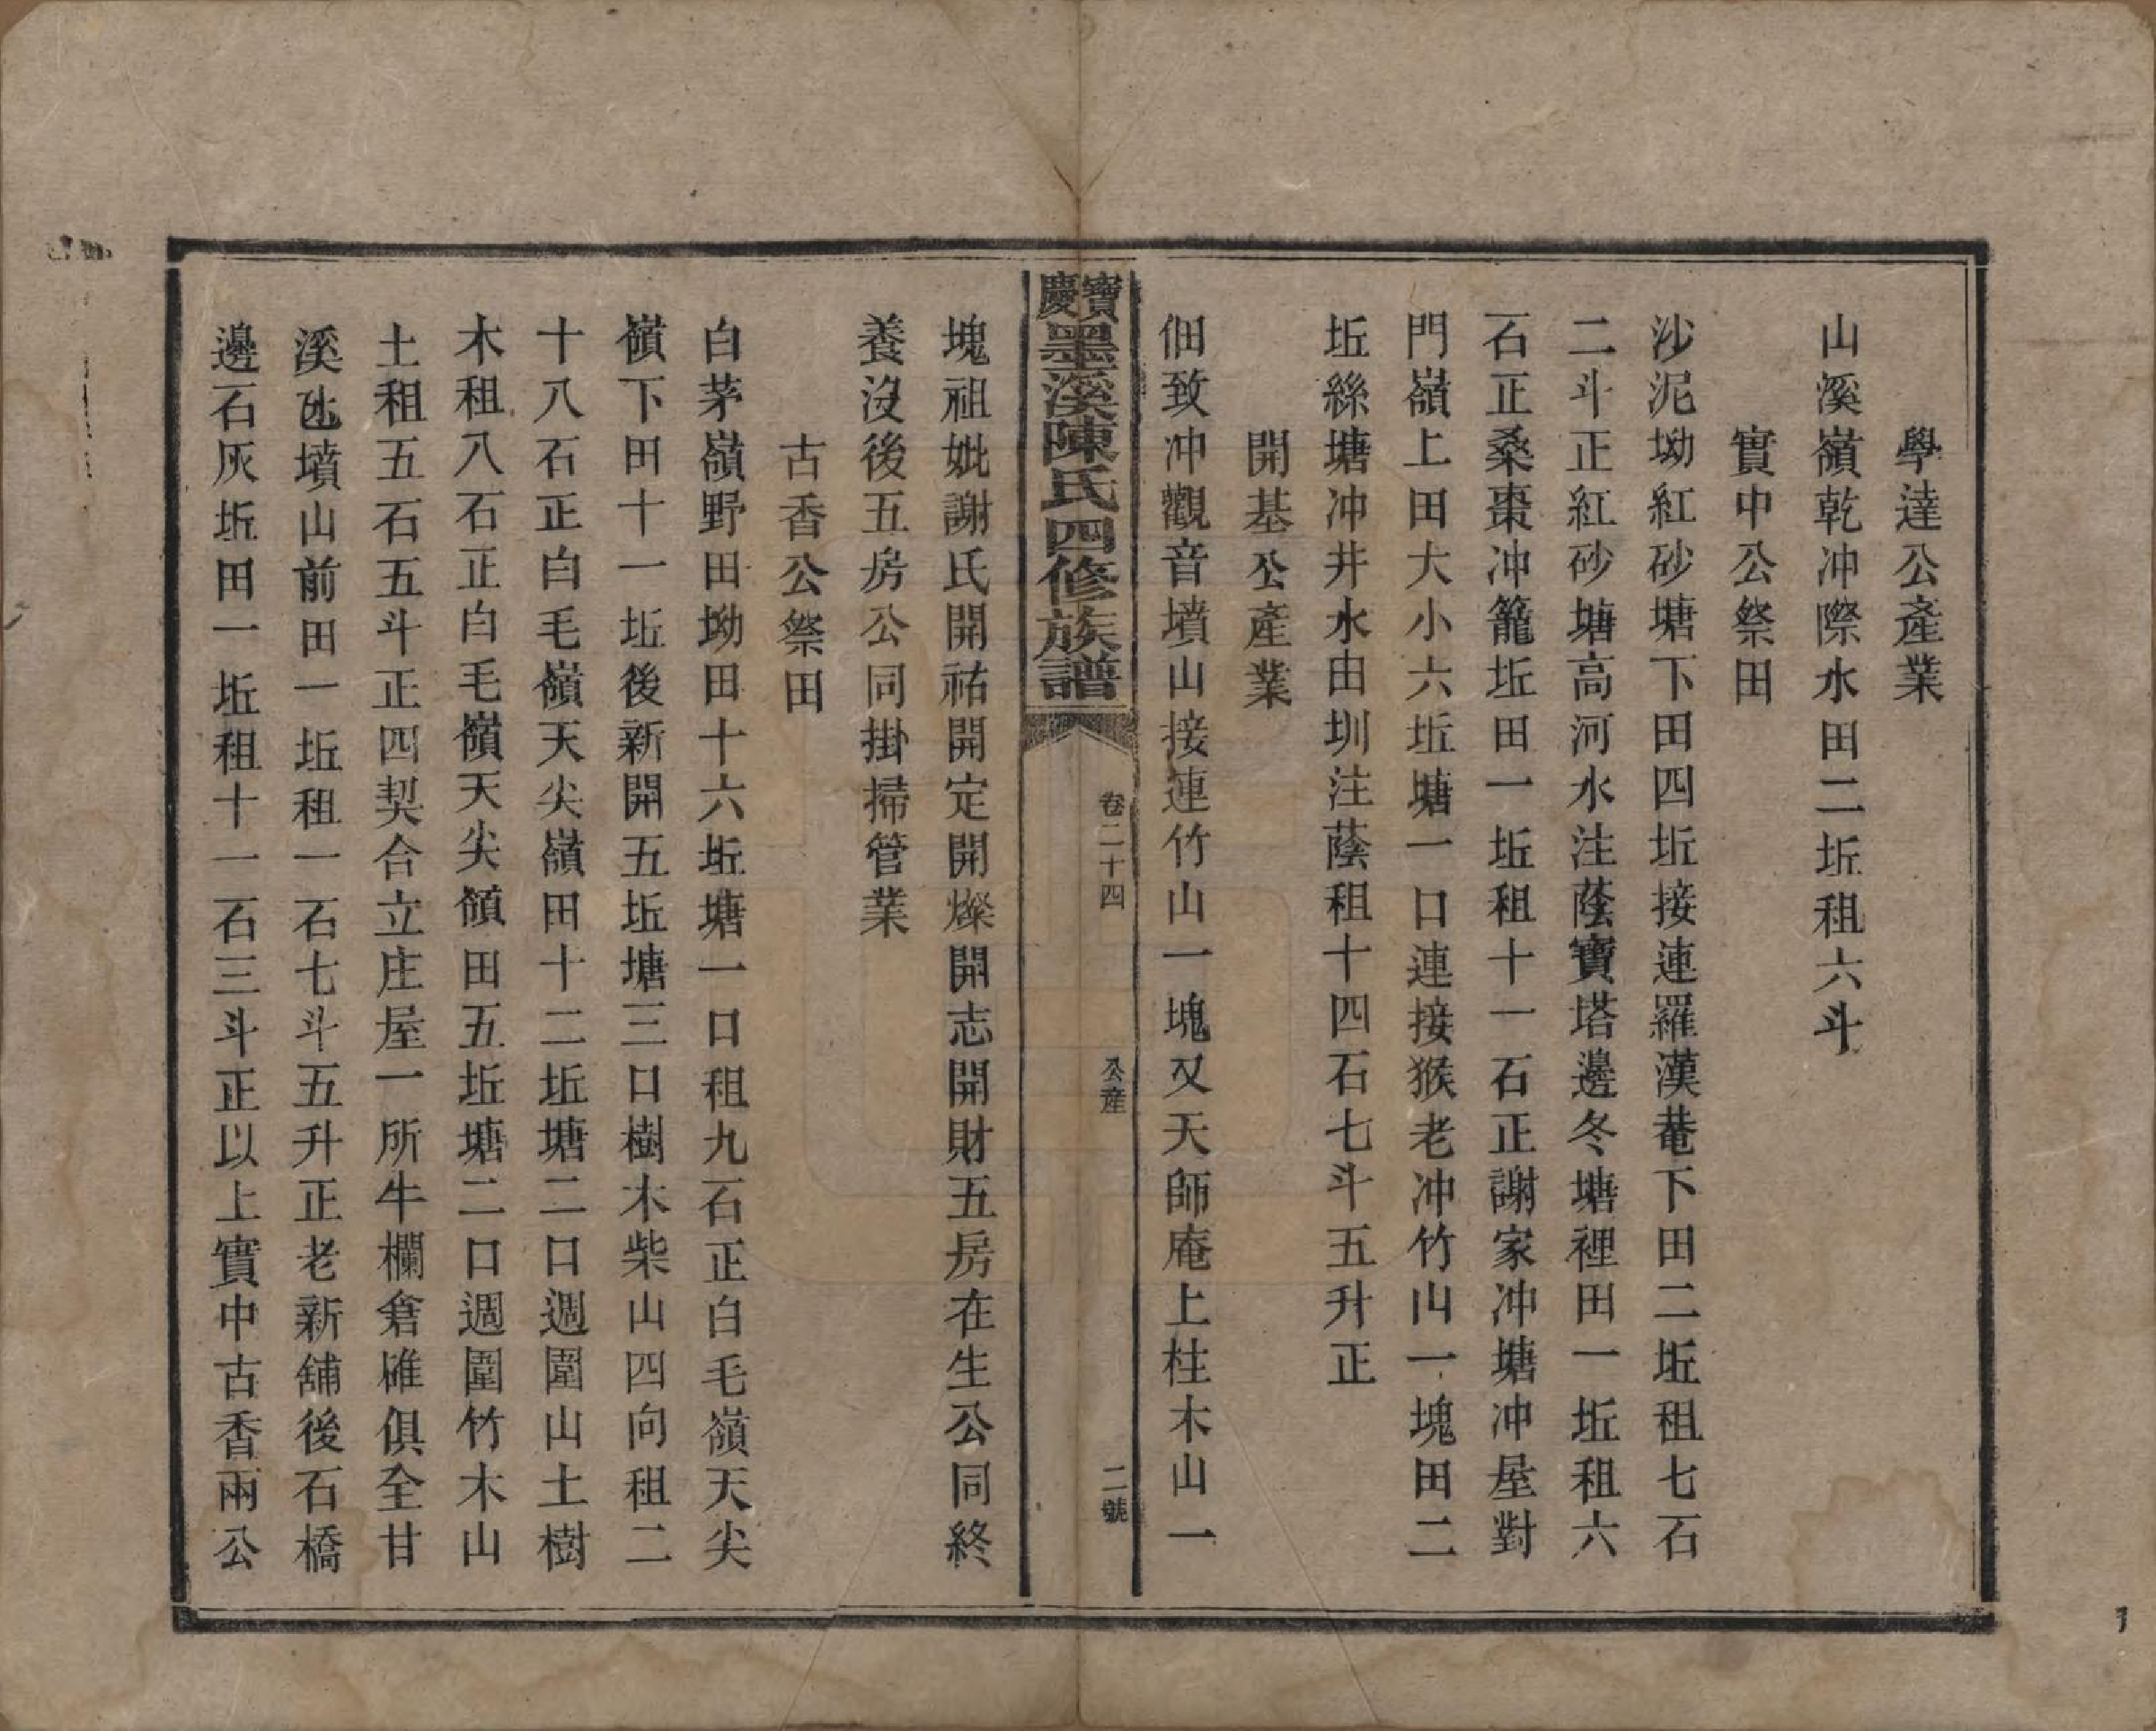 學達公產業
山溪嶺乾冲際水田二坵租六斗
實中公祭田
沙泥坳紅砂塘下田四坵接連羅漢菴下田二坵租七石
二斗正紅砂塘高河水注蔭寶塔邊冬塘裡田一坵租六
石正桑棗冲籠坵田一坵租十一石正謝家冲塘冲屋對
門嶺上田大小六坵塘一口連接猴老冲竹山一塊田二
坵絲塘冲井水由圳注蔭租十四石七斗五升正
開基公產業
佃致冲觀音墳山接連竹山一塊又天師庵上柱木山一
寶慶墨溪陳氏四修族譜
卷二十四
公產
二號
塊祖妣謝氏開祐開定開燦開志開財五房在生公同終
養沒後五房公同掛掃管業
古香公祭田
白茅嶺野田坳田十六坵塘一口租九石正白毛嶺天尖
嶺下田十一坵後新開五坵塘三口樹木柴山四向租二
十八石正白毛嶺天尖嶺田十二坵塘二口週圍山土樹
木租八石正白毛嶺天尖領田五坵塘二口週圍竹木山
土租五石五斗正四契合立庄屋一所牛欄倉碓俱全甘
溪迆墳山前田一坵租一石七斗五升正老新舖後石橋
邊石灰坵田一坵租十一石三斗正以上實中古香兩公